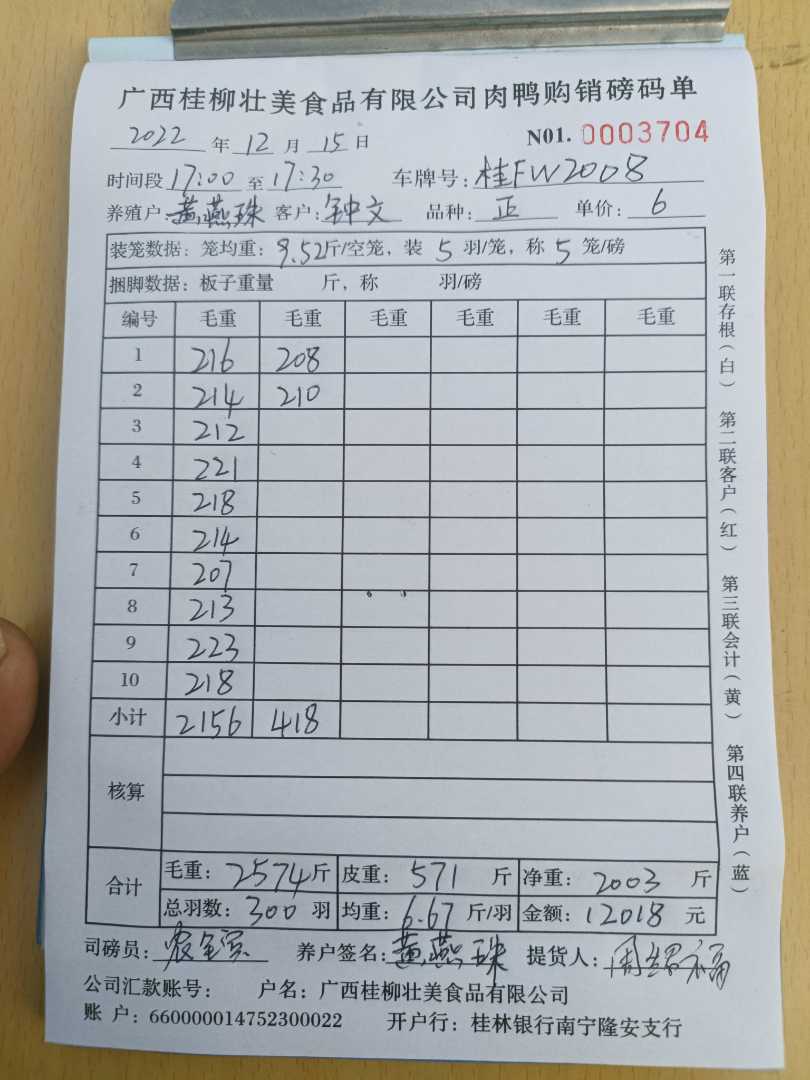 广西桂柳壮美食品有限公司肉鸭购销磅码单
2022 年 12 月 15 日 N01. 0003704
时间段 17:00 至 17:30 车牌号: 桂FW2008
养殖户: 黄燕珠 客户: 钟文 品种: 正 单价: 6
装笼数据: 笼均重: 9.52斤/空笼, 装 5 羽/笼, 称 5 笼/磅
捆脚数据: 板子重量 斤, 称 羽/磅
编号 毛重 毛重 毛重 毛重 毛重 毛重
1 216 208
2 214 210
3 212
4 221
5 218
6 214
7 207
8 213
9 223
10 218
小计 2156 418
核算
合计 毛重: 2574斤 皮重: 571 斤 净重: 2003 斤
总羽数: 300 羽 均重: 6.67 斤/羽 金额: 12018 元
司磅员: 养户签名: 黄燕珠 提货人: 周
公司汇款账号: 户名: 广西桂柳壮美食品有限公司
账 户: 660000014752300022 开户行: 桂林银行南宁隆安支行
第一联存根(白) 第二联客户(红) 第三联会计(黄) 第四联养户(蓝)